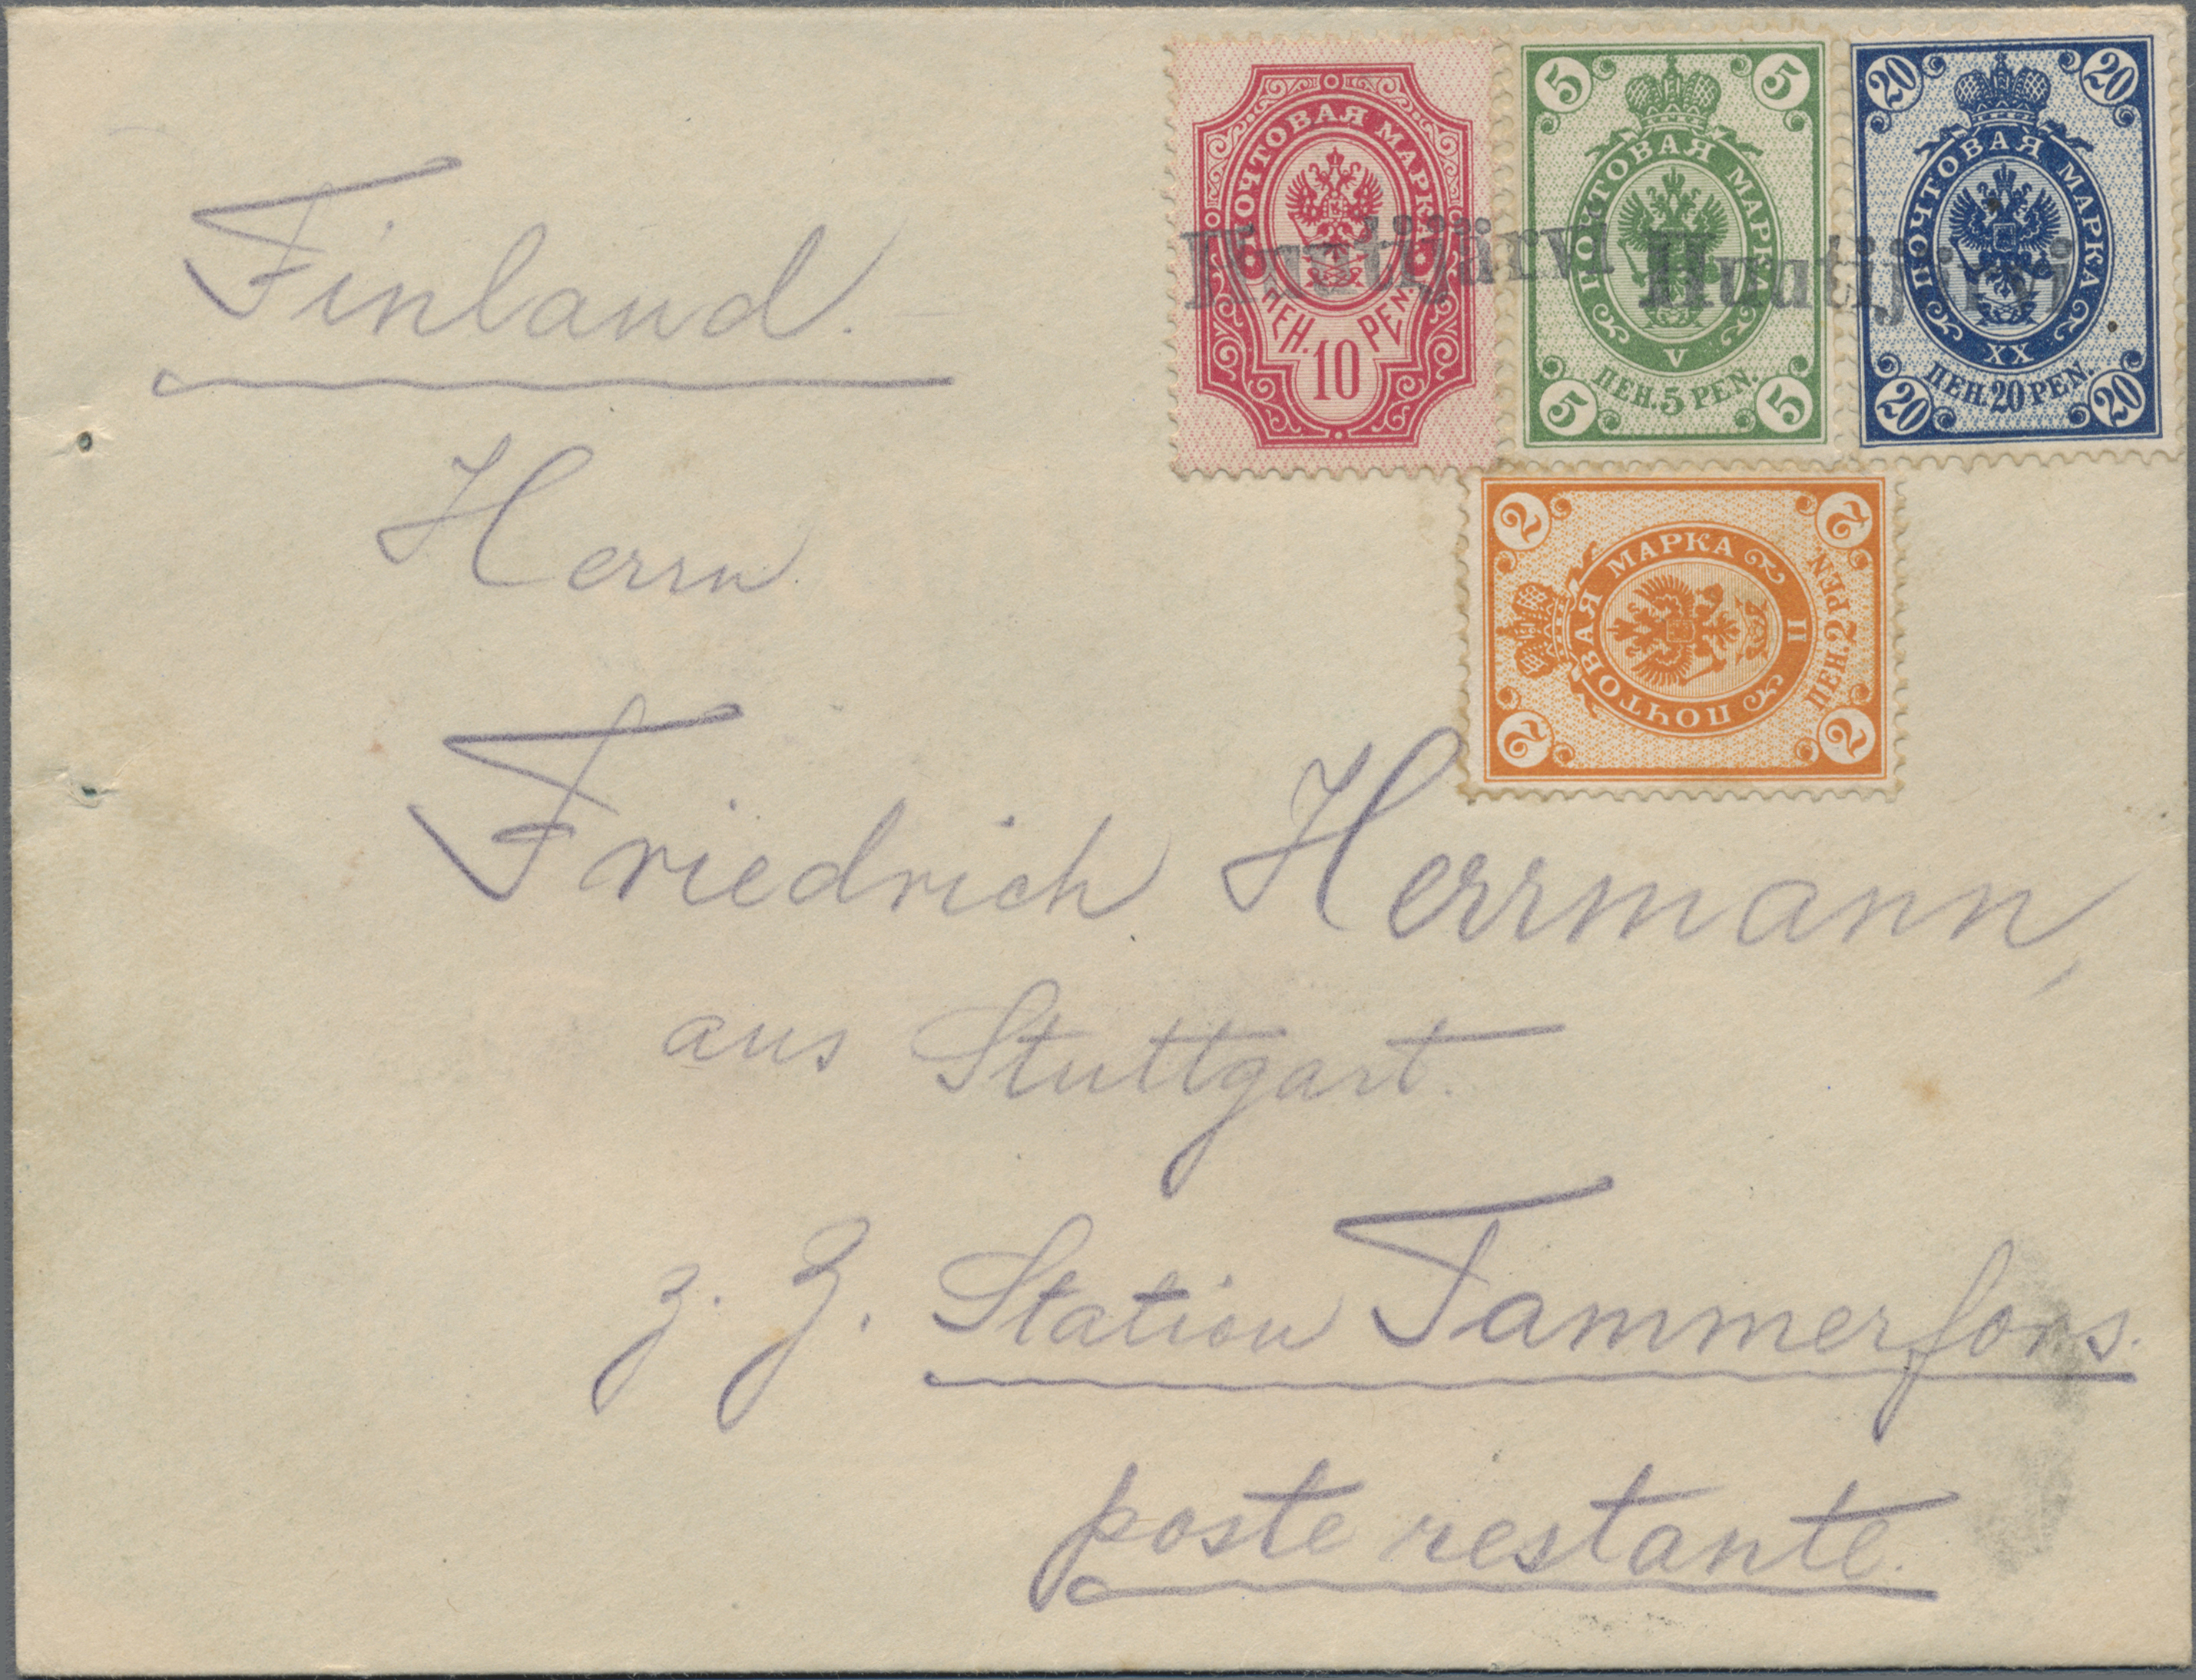 Finland.
Herrn
Friedrich Herrmann,
aus Stuttgart.
z. Z. Station Tammerfors.
poste restante.
ПОЧТОВАЯ МАРКА
ПЕН. 10 PEN.
5 5
ПОЧТОВАЯ МАРКА
V
ПЕН. 5 PEN.
5 5
20 20
ПОЧТОВАЯ МАРКА
XX
ПЕН. 20 PEN.
20 20
Huutijärvi Huutijärvi
2 2
ПОЧТОВАЯ МАРКА
II
ПЕН. 2 PEN.
2 2